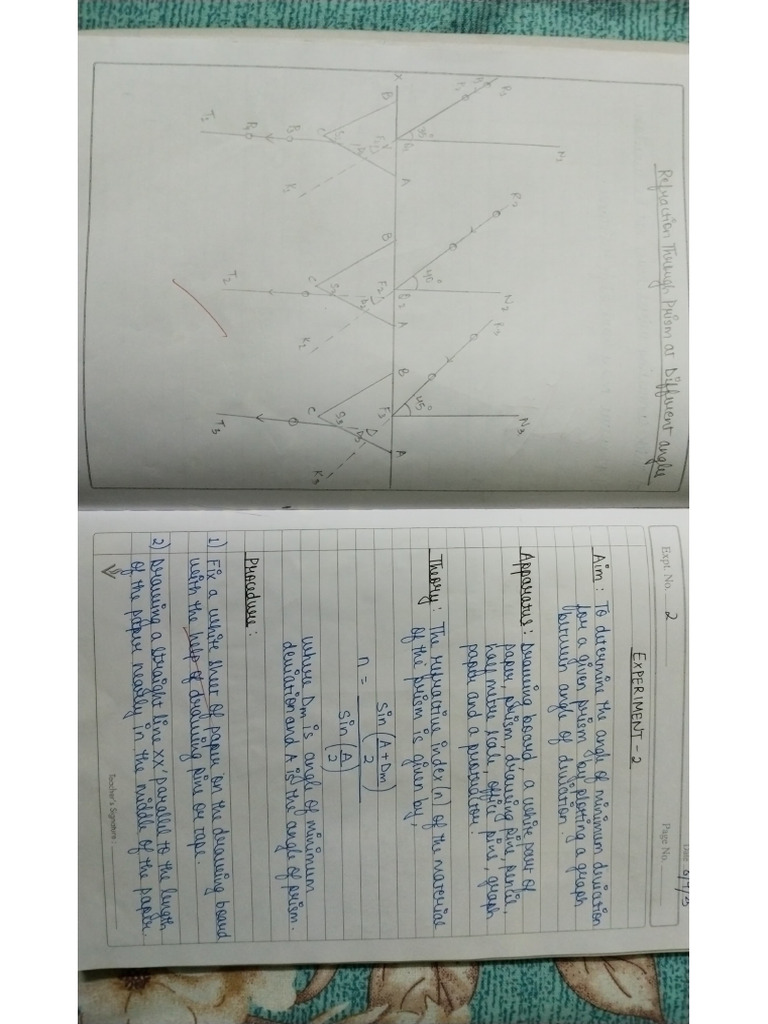 Refraction Through Prism at Different angles
N1
N2
N3
P1
P2
P3
35°
40°
45°
X
B
Q1
A
B
Q2
A
B
A
F2
F3
C
S1
C
S2
C
S3
D2
D3
K1
K2
K3
P3
P4
T1
T2
T3
Expt. No. 2
Page No.
EXPERIMENT - 2
Aim: To determine the angle of minimum deviation
for a given prism by plotting a graph
between angle of
Apparatus: Drawing board, a white paer of
paper, prism, drawing pins, pencil,
half metre scale, office pins, graph
paper and a protractor.
Theory: The refractive index (n) of the material
of the prism is given by,
n = Sin (A + Dm / 2)
Sin (A / 2)
where Dm is angle of minimum
deviation and A is the angle of prism.
Procedure:
1) Fix a white sheet of paper on the drawing board
with the help of drawing pins or tape.
2) Drawing a straight line XX' parallel to the length
of the paper nearly in the middle of the paper.
Teacher's Signature :